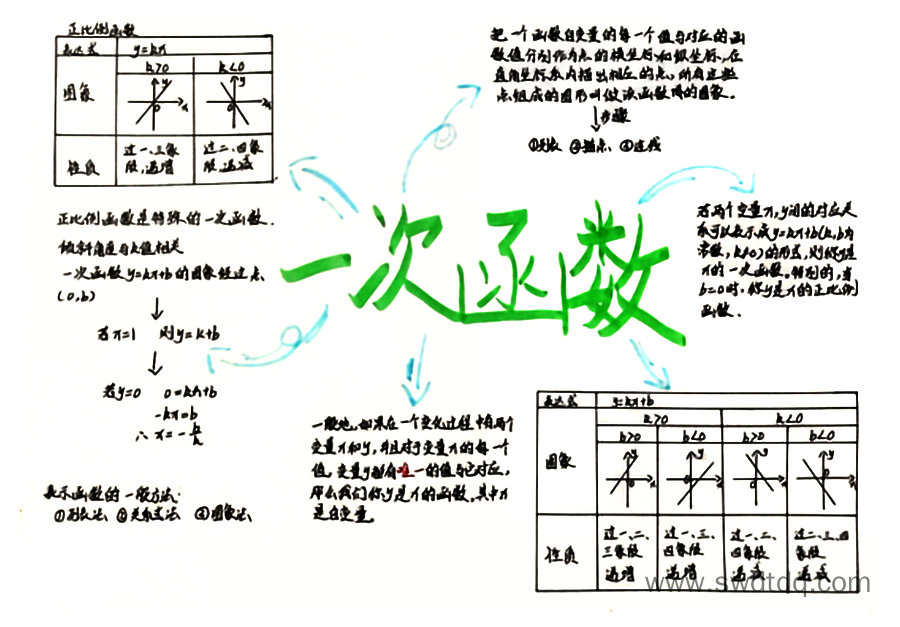 正比例函数
表达式 y=kx
图象 k>0 k<0
y x 0 y x 0
性质 过一、三象限,递增 过二、四象限,递减
把一个函数自变量的每一个值与对应的函
数值分别作为点的横坐标和纵坐标,在
直角坐标系内描出相应的点,所有这些
点组成的图形叫做该函数的图象。
步骤
①列表 ②描点 ③连线
正比例函数是特殊的一次函数.
倾斜角度与k值相关
一次函数y=kx+b的图象经过点
(0,b)
若x=1 则y=k+b
若y=0 0=kx+b
-kx=b
∴x=-b/k
表示函数的一般方法:
①列表法 ②关系式法 ③图象法
一次函数
若两个变量x,y间的对应关
系可以表示成y=kx+b(k,b为
常数,k≠0)的形式,则称y是
x的一次函数。特别的,当
b=0时,称y是x的正比例
函数.
一般地,如果在一个变化过程中有两个
变量x和y,并且对于变量x的每一个
值,变量y都有唯一的值与它对应,
那么我们称y是x的函数,其中x
是自变量。
表达式 y=kx+b
k>0 k<0
b>0 b<0 b>0 b<0
图象
性质 过一、二、三象限 递增 过一、三、四象限 递增 过一、二、四象限 递减 过二、三、四象限 递减
www.swdtdq.com